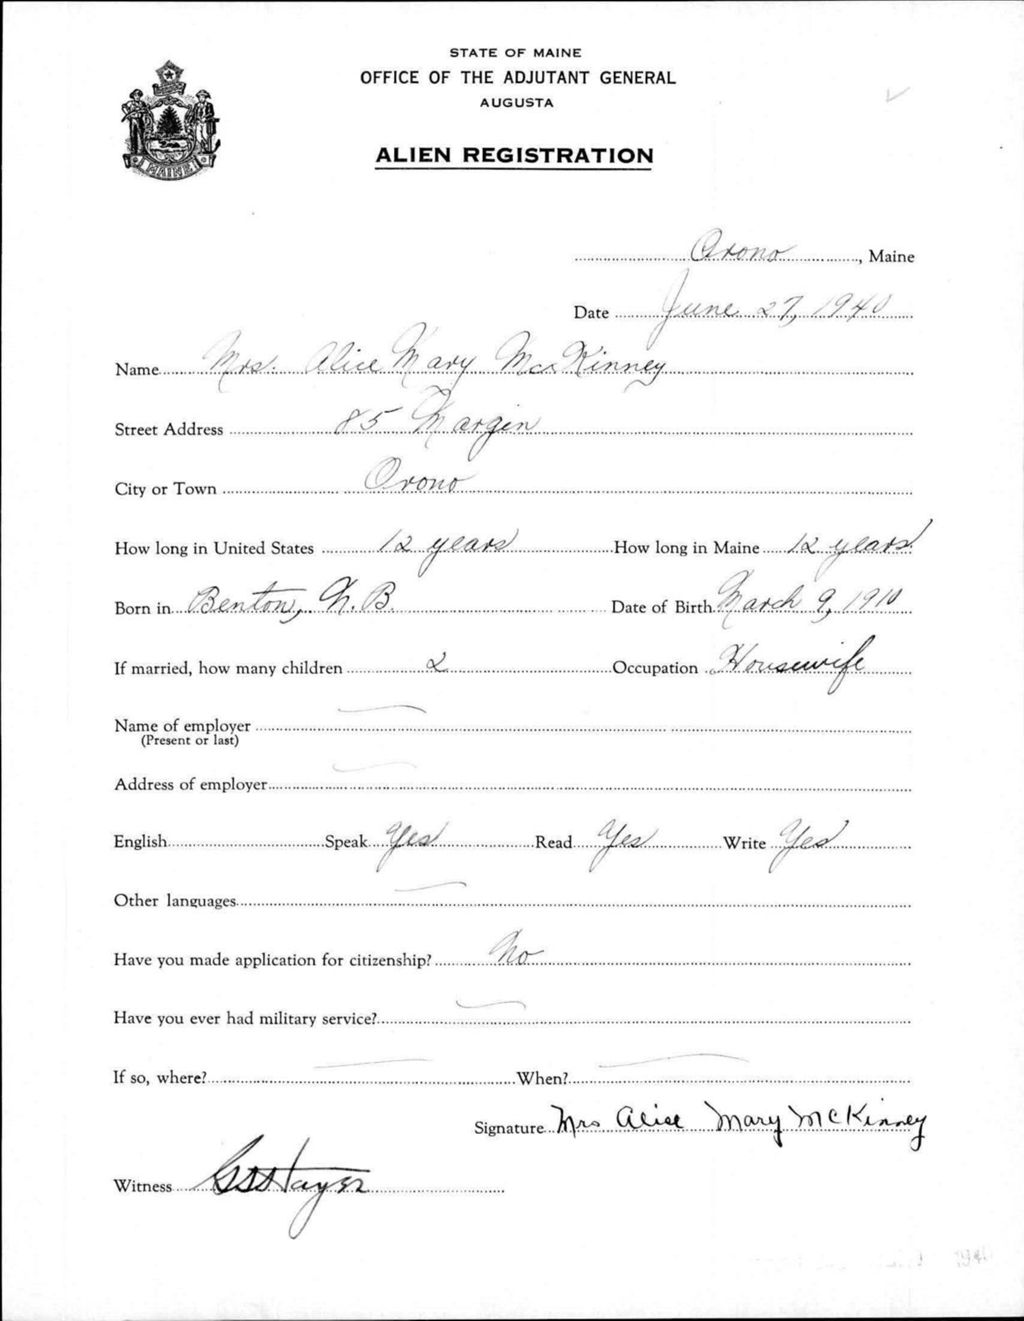 STATE OF MAINE
OFFICE OF THE ADJUTANT GENERAL
AUGUSTA
ALIEN REGISTRATION
MAINE
Orono, Maine
Date June 27, 1940
Name Mrs. Alice Mary McKinney
Street Address 85 Margin
City or Town Orono
How long in United States 12 years How long in Maine 12 years
Born in Benton, N.B. Date of Birth March 9, 1910
If married, how many children 2 Occupation Housewife
Name of employer —
(Present or last)
Address of employer —
English Speak Yes Read Yes Write Yes
Other languages —
Have you made application for citizenship? No
Have you ever had military service? —
If so, where? — When? —
Signature Mrs Alice Mary McKinney
Witness